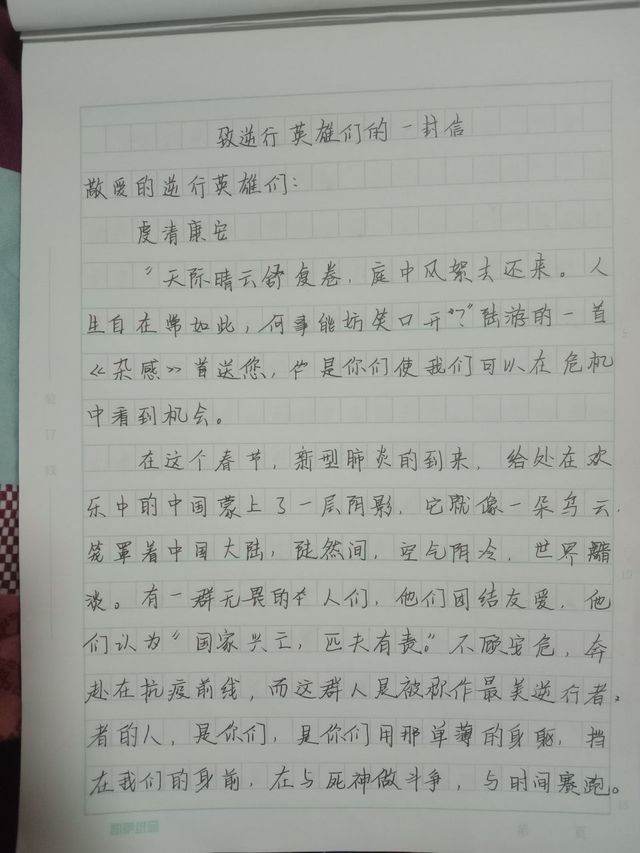 致逆行英雄们的一封信
敬爱的逆行英雄们：
虔清康安
“天际晴云舒复卷，庭中风絮去还来。人
生自在常如此，何事能妨笑口开？”陆游的一首
《杂感》首送您，是你们使我们可以在危机
中看到机会。
在这个春节，新型肺炎的到来，给处在欢
乐中的中国蒙上了一层阴影，它就像一朵乌云，
笼罩着中国大陆，陡然间，空气阴冷，世界黯
淡。有一群无畏的人们，他们团结友爱，他
们认为“国家兴亡，匹夫有责。”不顾安危，奔
赴在抗疫前线，而这群人是被称作最美逆行者。
者的人，是你们，是你们用那单薄的身躯，挡
在我们的身前，在与死神做斗争，与时间赛跑。
第 页